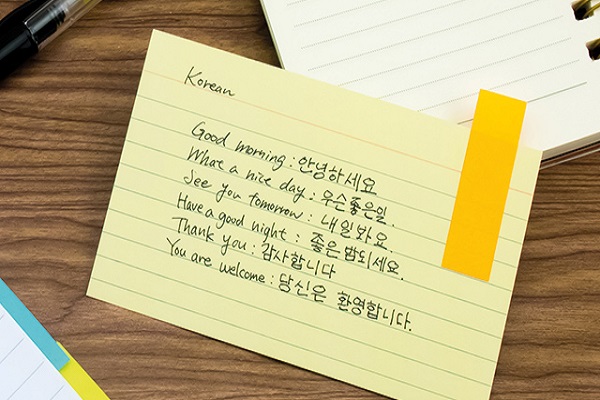 Korean
Good morning : 안녕하세요
What a nice day : 무슨좋은일.
See you tomorrow : 내일봐요
Have a good night : 좋은밤되세요.
Thank you : 감사합니다
You are welcome : 당신은 환영합니다.